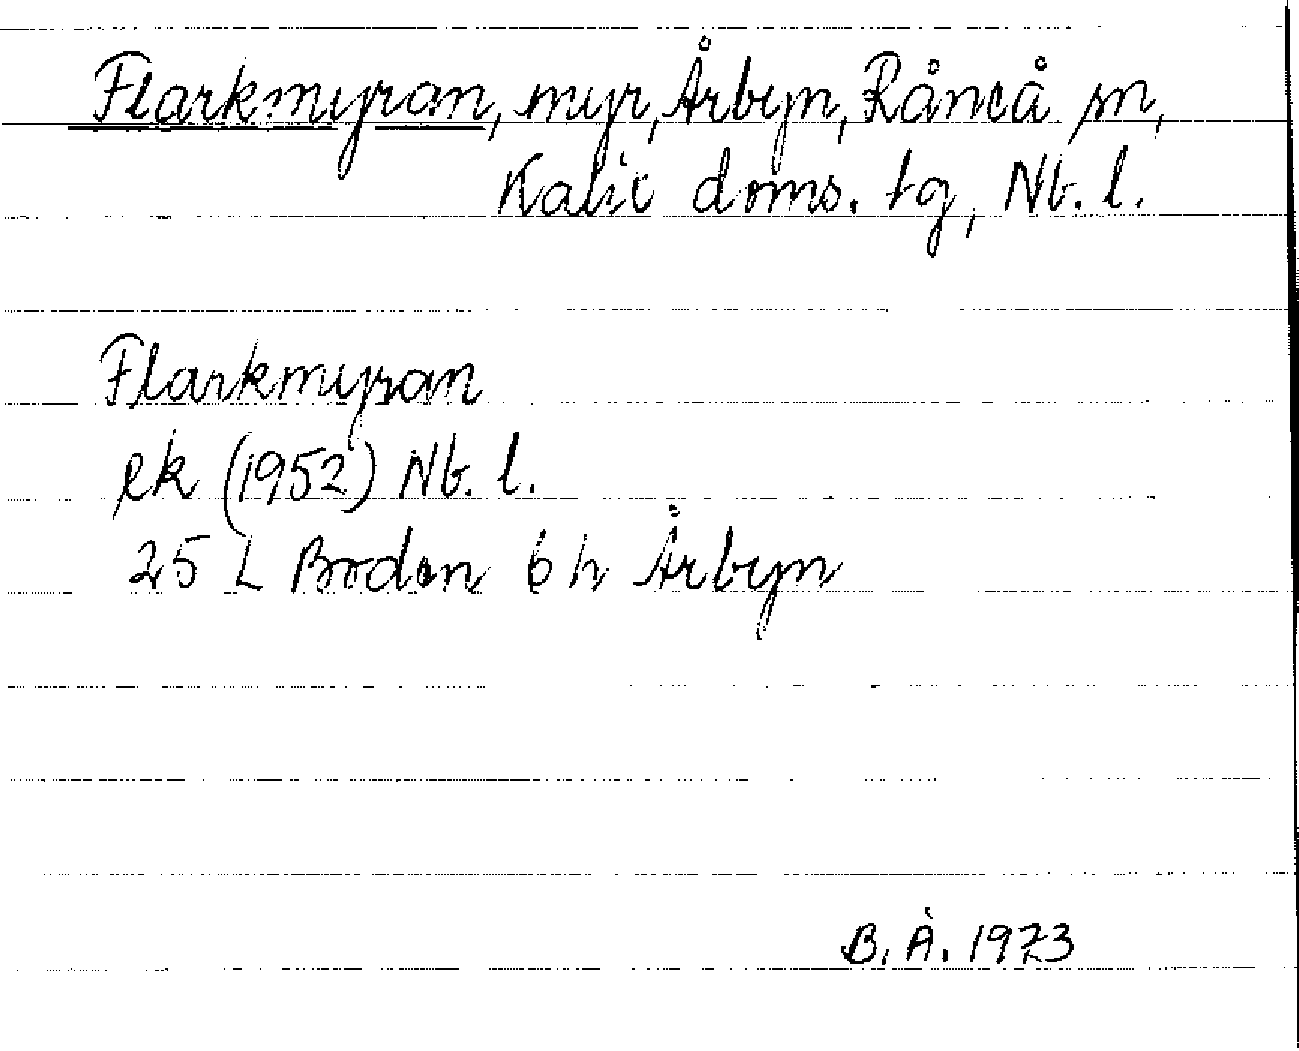 Flarkmyran, myr, Årbyn, Råneå sn,
Kalix doms. tg, Nb. l.
Flarkmyran
ek (1952) Nb. l.
25 L Boden 6 h Årbyn
B. Å. 1973